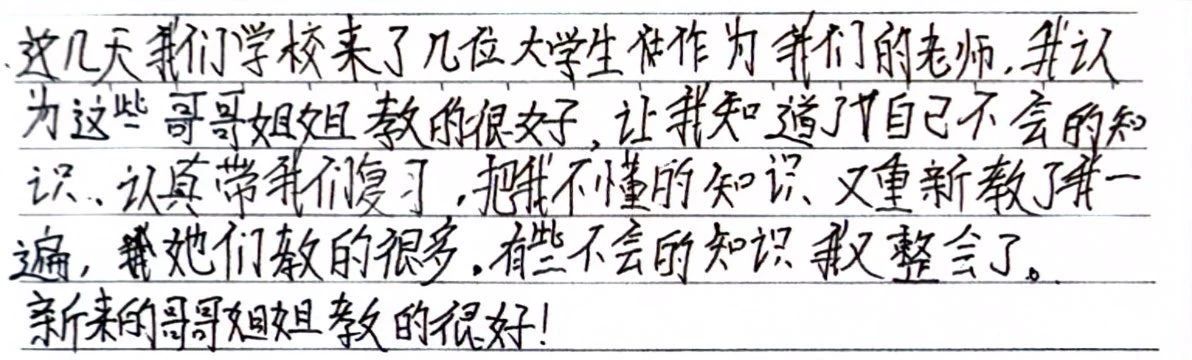 这几天我们学校来了几位大学生作为我们的老师,我认
为这些哥哥姐姐教的很好,让我知道了自己不会的知
识、认真带我们复习,把我不懂的知识、又重新教了我一
遍,她们教的很多。有些不会的知识我又整会了。
新来的哥哥姐姐教的很好!